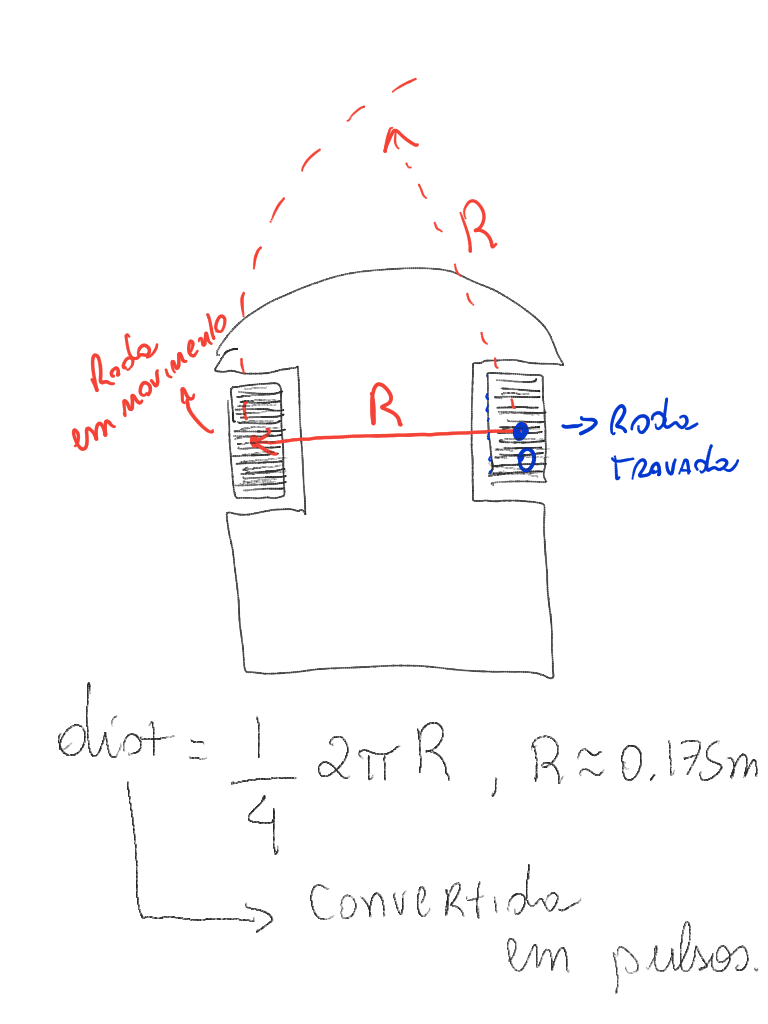 R
Roda
em movimento
R
→ Roda
travada
dist = 1/4 2πR, R≈0.175m
convertida
em pulsos.